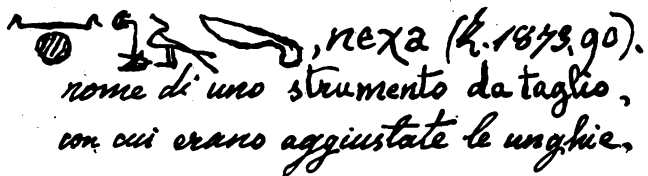 , nexa (Z. 1873, 90).
nome di uno strumento da taglio,
con cui erano aggiustate le unghie.